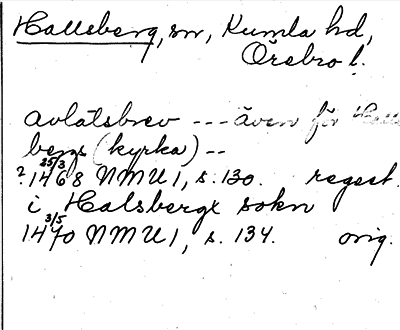 Hallsberg, sn, Kumla hd,
Örebro l.
avlatsbrev --- även för Halls
bergs (kyrka) --
? 25/3 1468 NMU 1, s. 130. regest.
i Halsbergx sokn
3/5 1470 NMU 1, s. 134. orig.